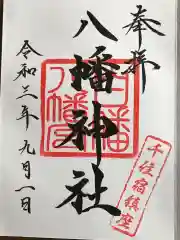 奉拝
八幡神社
八幡
令和三年九月一日
千住宿鎮座